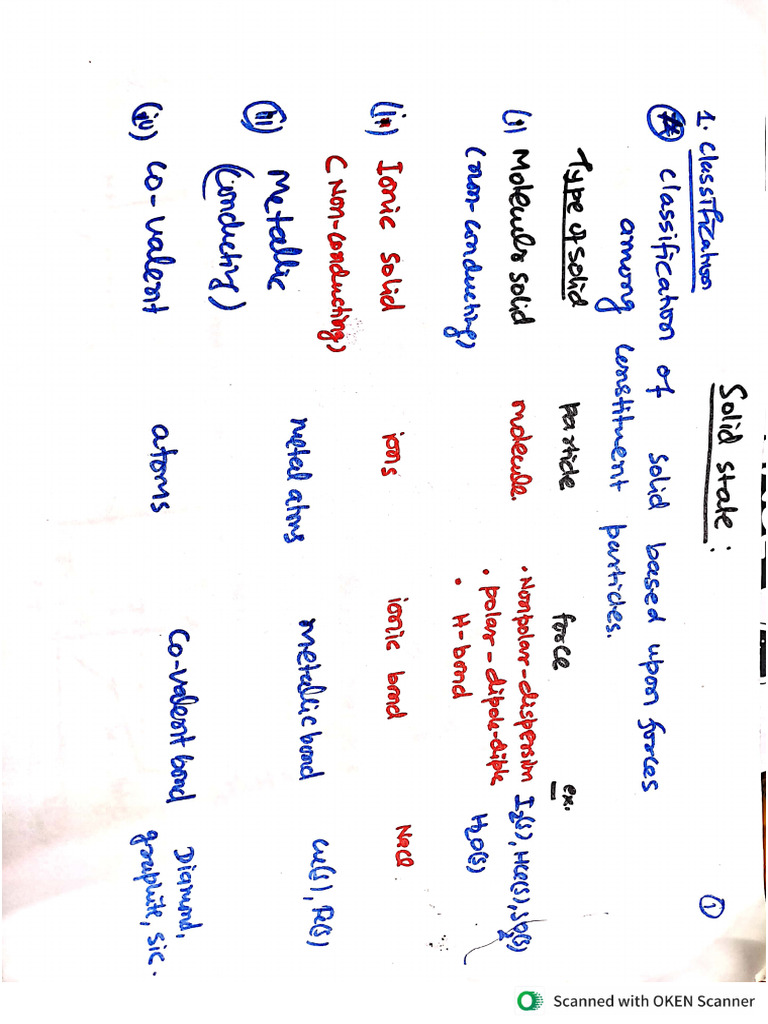 Solid state :
①
1. Classification
classification of solid based upon forces
among constituent particles.
Type of solid particle force ex.
(i) Moleculr solid molecule. • Nonpolar-dispersion I2(s), HCl(s), SO2(s)
(non-conducting) • polar-dipole-diple H2O(s)
• H-bond
(ii) Ionic solid ions ionic bond NaCl
(Non-conducting)
(iii) Metallic metal atoms metallic bond Cu(s), Fe(s)
(conducting)
(iv) Co-valent atoms Co-valent bond Diamond,
graphite, sic.
Scanned with OKEN Scanner